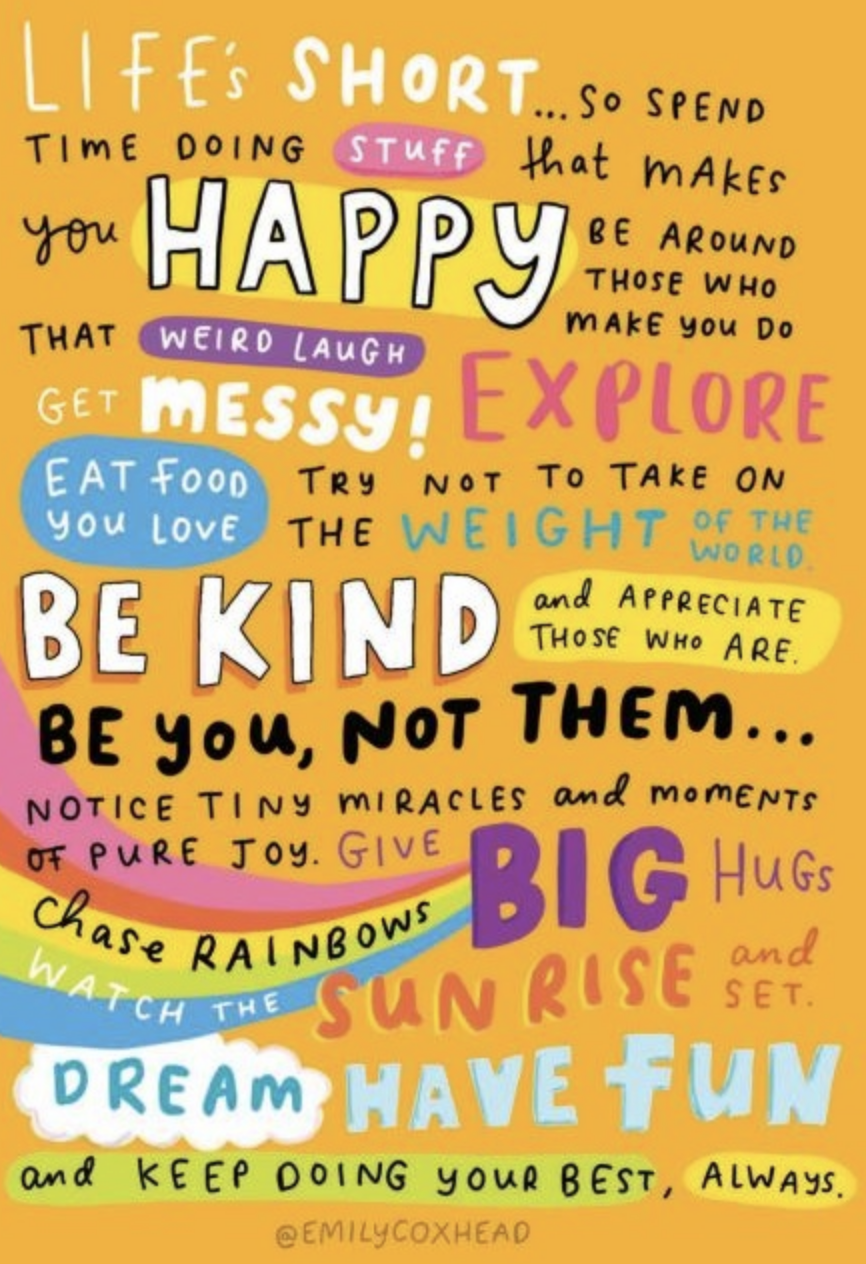 LIFE's SHORT...SO SPEND
TIME DOING STUFF that MAKES
you HAPPY BE AROUND
THOSE WHO
MAKE you DO
THAT WEIRD LAUGH
GET MESSY! EXPLORE
EAT FOOD
you LOVE
TRY NOT TO TAKE ON
THE WEIGHT OF THE
WORLD.
BE KIND and APPRECIATE
THOSE WHO ARE.
BE you, NOT THEM...
NOTICE TINY MIRACLES and MOMENTS
OF PURE JOY. GIVE BIG HUGS
Chase RAINBOWS
WATCH THE SUNRISE and
SET.
DREAM HAVE FUN
and KEEP DOING YOUR BEST, ALWAYS.
@EMILYCOXHEAD